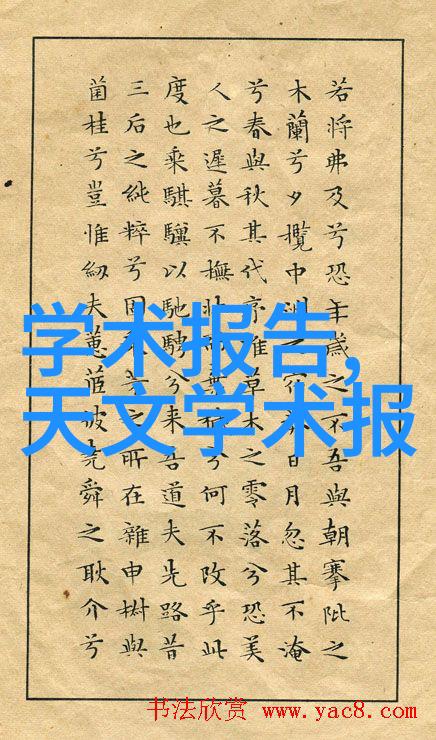 若將弗及兮恐年歲之不吾與朝搴阰之
木蘭兮夕攬中洲之宿莽日月忽其不淹
兮春與秋其代序惟草木之零落兮恐美
人之遲暮不撫壯而兮何不改乎此
度也乘騏驥以馳騁兮来吾道夫先路昔
三后之純粹兮固芳之所在雜申椒與
菌桂兮豈惟紉夫蕙茝彼堯舜之耿介兮
学术报告,
天文学术报
书法欣赏 www.yac8.com